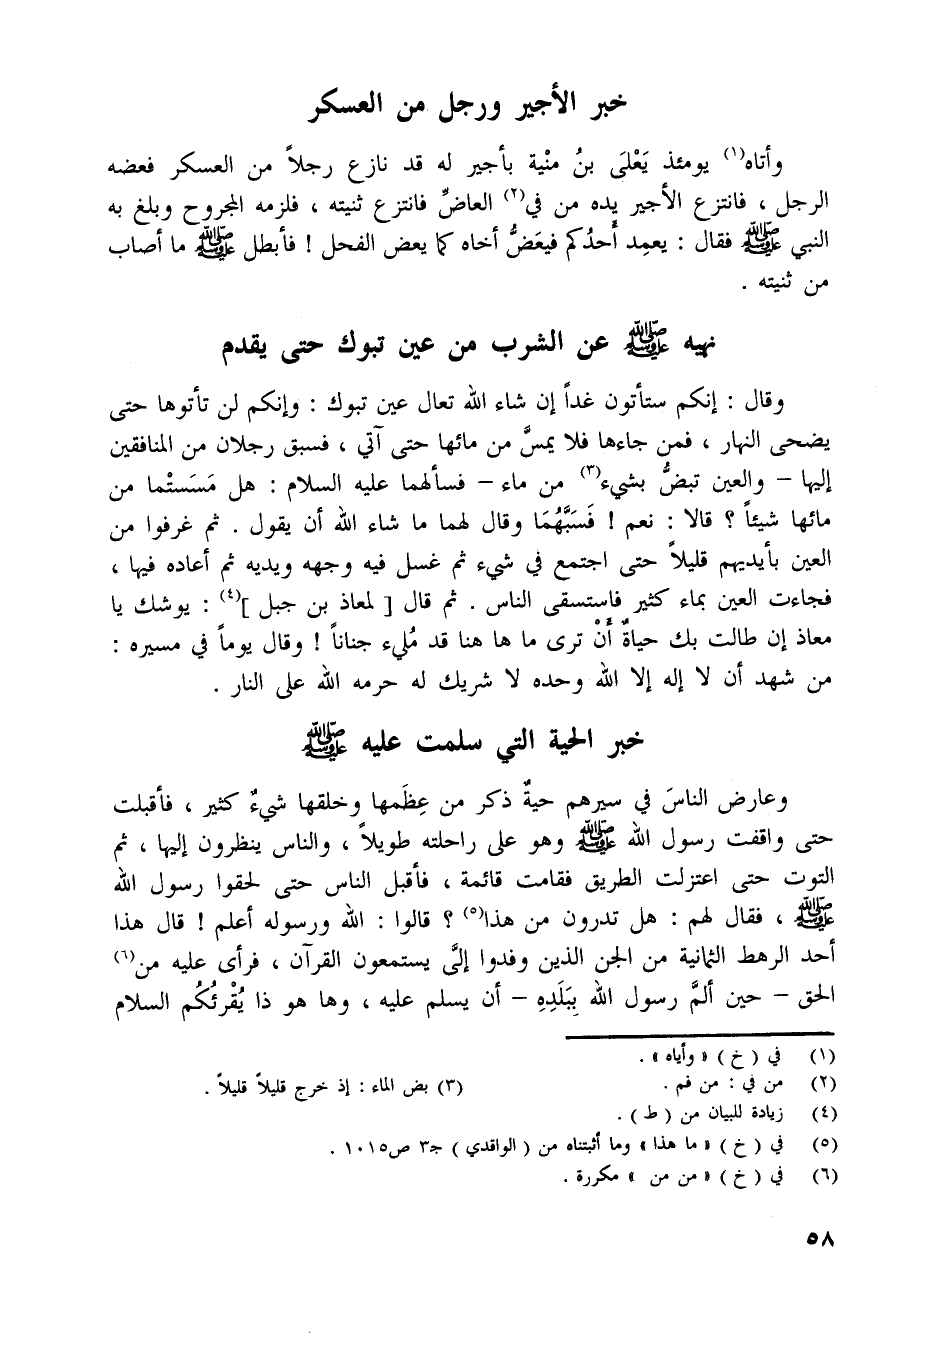 خبر الأجير ورجل من العسكر
وأتاه(١) يومئذ يَعْلَى بنُ منْية بأجير له قد نازع رجلاً من العسكر فعضه
الرجل ، فانتزع الأجير يده من في(٢) العاضِّ فانتزع ثنيته ، فلزمه المجروح وبلغ به
النبي ﷺ فقال : يعمِد أَحدُكم فيعَضُّ أخاه كما يعض الفحل ! فأبطل ﷺ ما أصاب
من ثنيته .
نهيه ﷺ عن الشرب من عين تبوك حتى يقدم
وقال : إنكم ستأتون غداً إن شاء الله تعال عين تبوك : وإنكم لن تأتوها حتى
يضحى النهار ، فمن جاءها فلا يمسَّ من مائها حتى آتي ، فسبق رجلان من المنافقين
إليها – والعين تبضُّ بشيء(٣) من ماء – فسألهما عليه السلام : هل مَسَستْما من
مائها شيئاً ؟ قالا : نعم ! فَسَبَّهُمَا وقال لهما ما شاء الله أن يقول . ثم غرفوا من
العين بأيديهم قليلاً حتى اجتمع في شيء ثم غسل فيه وجهه ويديه ثم أعاده فيها ،
فجاءت العين بماء كثير فاستسقى الناس . ثم قال [ لمعاذ بن جبل ](٤) : يوشك يا
معاذ إن طالت بك حياةٌ أَنْ ترى ما ها هنا قد مُليء جناناً ! وقال يوماً في مسيره :
من شهد أن لا إله إلا الله وحده لا شريك له حرمه الله على النار .
خبر الحية التي سلمت عليه ﷺ
وعارض الناسَ في سيرهم حيةٌ ذكر من عِظَمها وخلقها شيءٌ كثير ، فأقبلت
حتى واقفت رسول الله ﷺ وهو على راحلته طويلاً ، والناس ينظرون إليها ، ثم
التوت حتى اعتزلت الطريق فقامت قائمة ، فأقبل الناس حتى لحقوا رسول الله
ﷺ ، فقال لهم : هل تدرون من هذا(٥) ؟ قالوا : الله ورسوله أعلم ! قال هذا
أحد الرهط الثمانية من الجن الذين وفدوا إلىَّ يستمعون القرآن ، فرأى عليه من(٦)
الحق – حين ألمَّ رسول الله بِبَلَدِهِ – أن يسلم عليه ، وها هو ذا يُقْرئُكُم السلام
(١) في ( خ ) « وأياه » .
(٢) من في : من فم . (٣) بض الماء : إذ خرج قليلاً قليلاً .
(٤) زيادة للبيان من ( ط ) .
(٥) في ( خ ) « ما هذا » وما أثبتناه من ( الواقدي ) جـ٣ ص١٠١٥ .
(٦) في ( خ ) « من من » مكررة .
٥٨